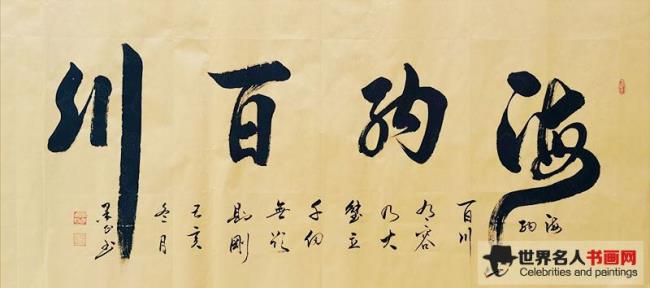 海納百川
海納
百川
有容
乃大
壁立
千仞
無欲
則剛
己亥
冬月
世界名人书画网
Celebrities and paintings